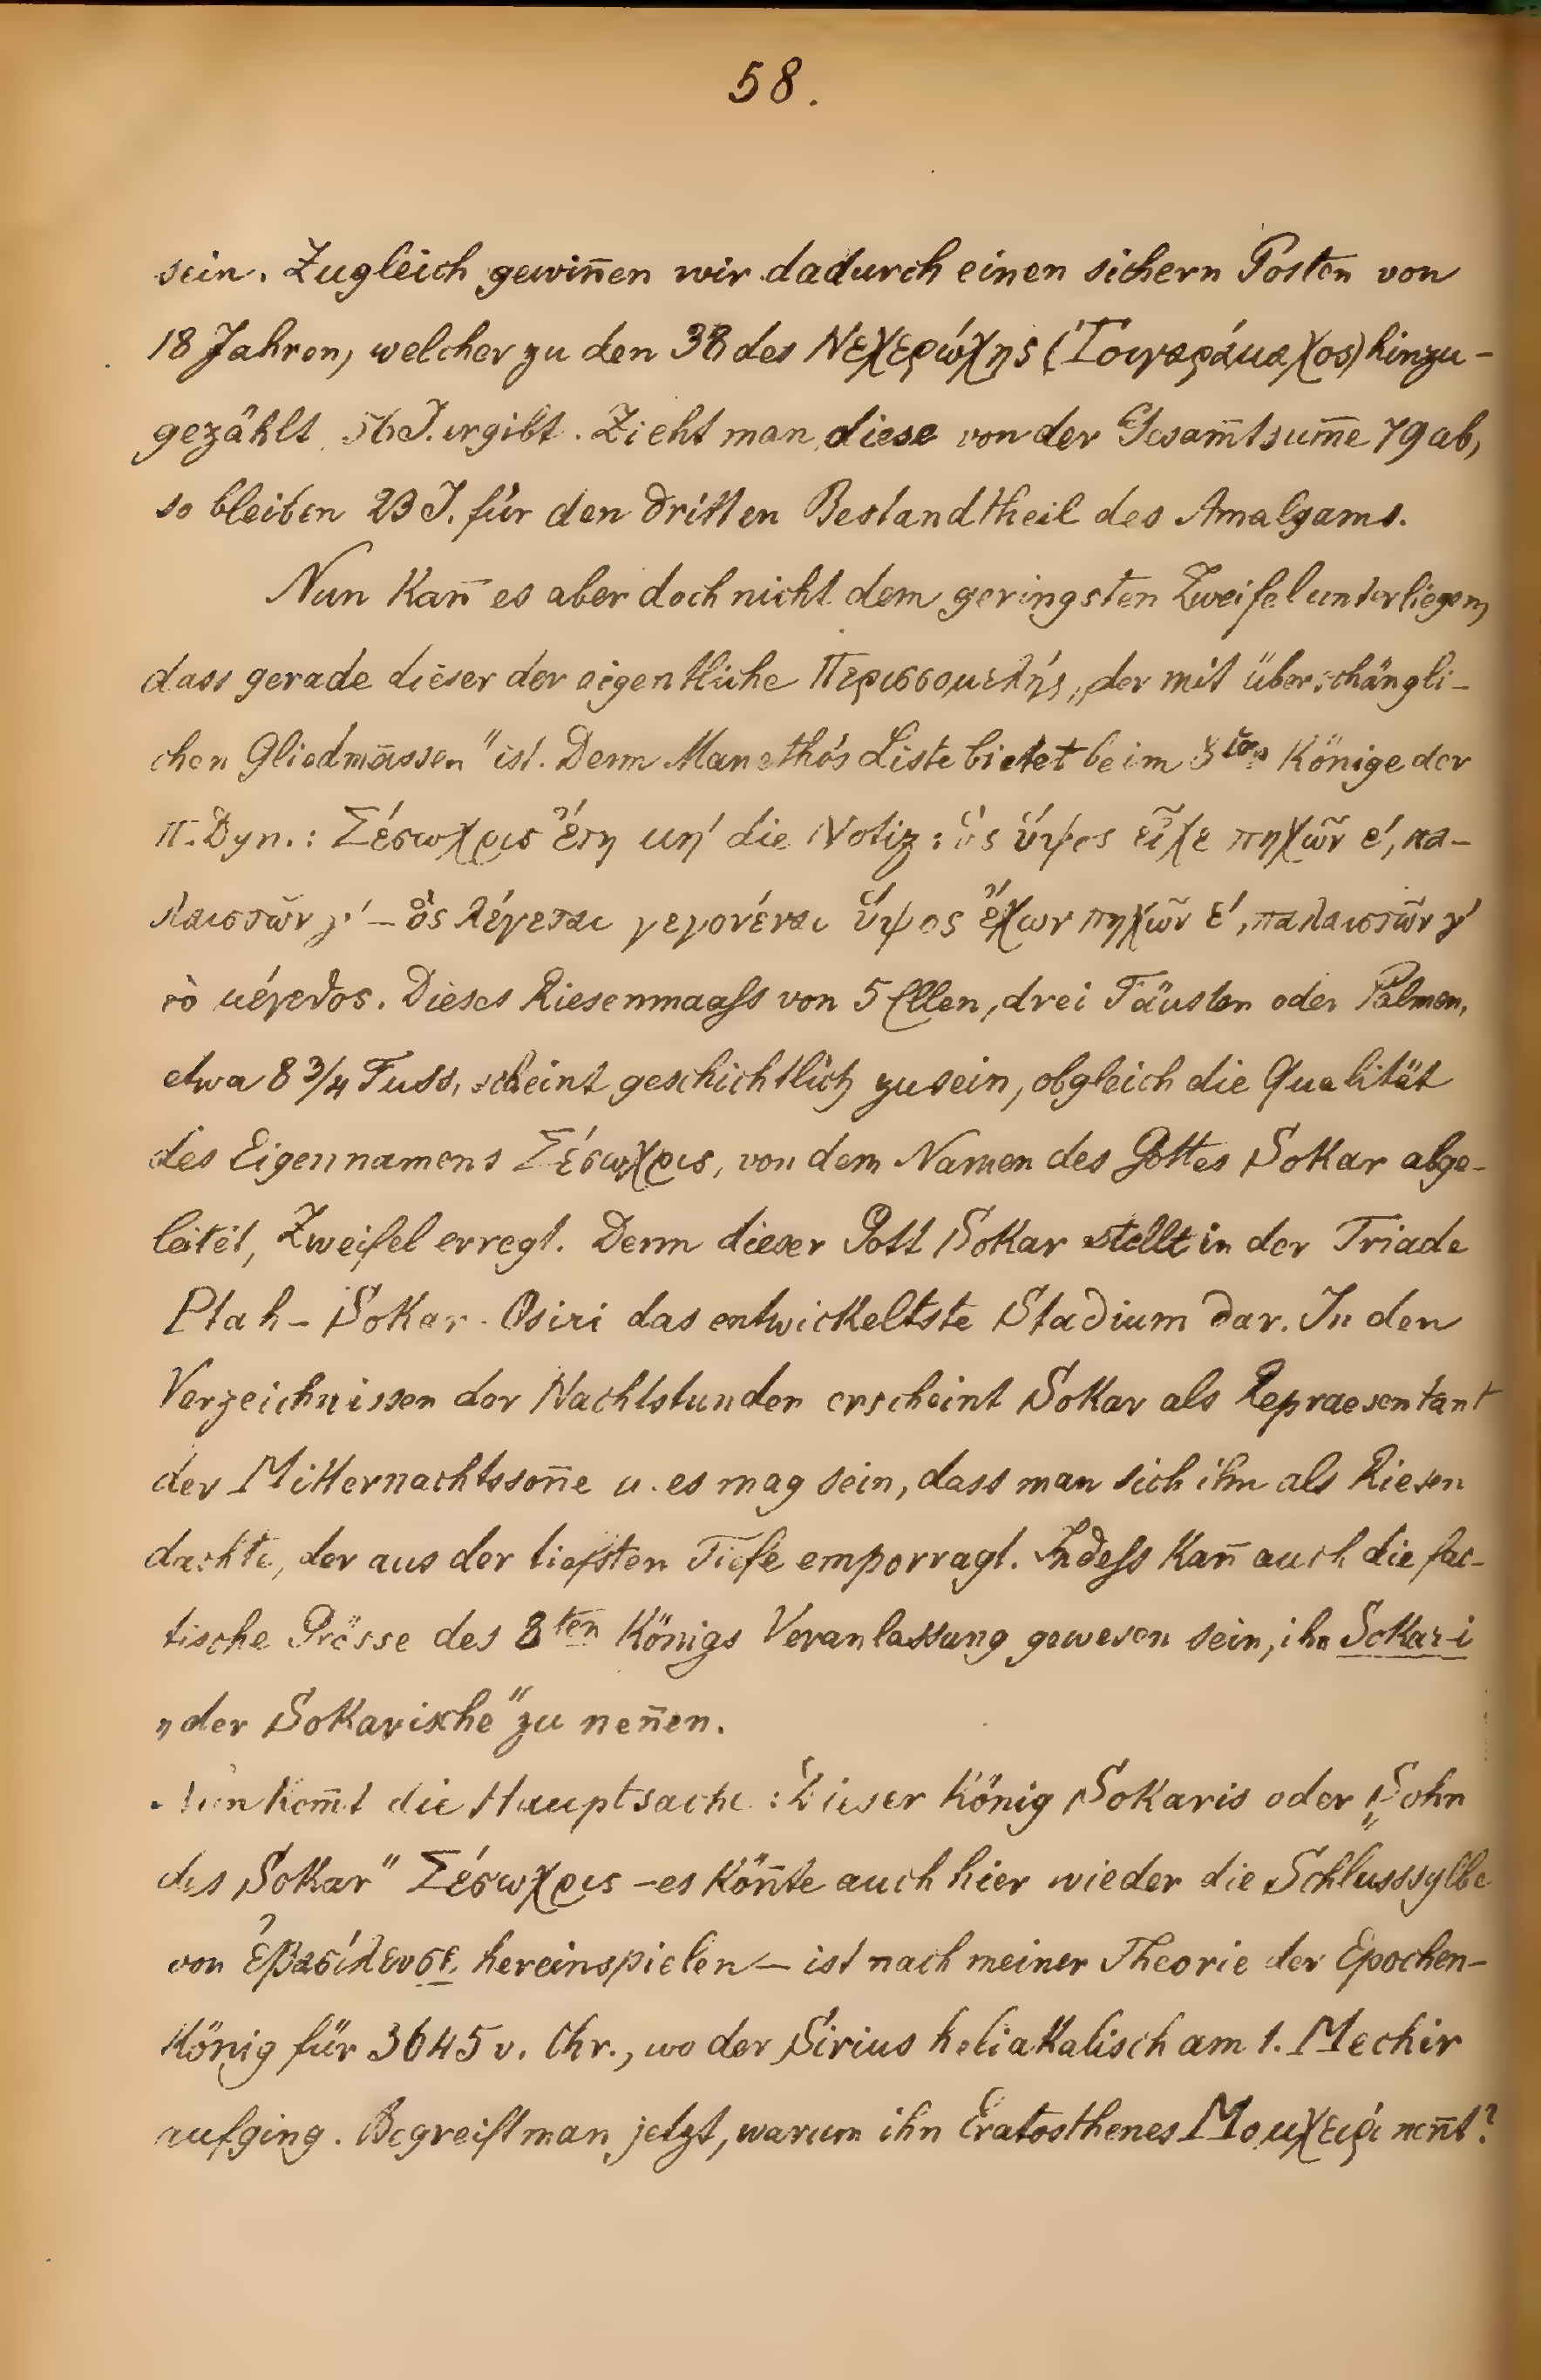 58.
sein. Zugleich gewin̄en wir dadurch einen sichern Posten von
18 Jahren, welcher zu den 38 des Νεχερώχης (Τοιγαράμαχος) hinzu-
gezählt 56 J. ergibt. Zieht man diese von der Gesam̄tsum̄e 79 ab,
so bleiben 23 J. für den dritten Bestandtheil des Amalgams.
Nun kan̄ es aber doch nicht dem geringsten Zweifel unterliegen,
dass gerade dieser der eigentliche Περισσομελής „der mit überschängli-
chen Gliedmāssen" ist. Denn Manetho's Liste bietet beim 8ten Könige der
II. Dyn.: Σέσωχρις ἔτη μη' die Notiz: ὃς ὕψος εἶχε πηχῶν ε', πα-
λαιστῶν γ' – ὃς λέγεται γεγονέναι ὕψος ἔχων πηχῶν ε', παλαιστῶν γ'
τὸ μέγεθος. Dieses Riesenmaaſs von 5 Ellen, drei Fäusten oder Palmen,
etwa 8 3/4 Fuss, scheint geschichtlich zu sein, obgleich die Qualität
des Eigennamens Σέσωχρις, von dem Namen des Gottes Sokar abge-
leitet, Zweifel erregt. Denn dieser Gott Sokar stellt in der Triade
Ptah - Sokar - Osiri das entwickeltste Stadium dar. In den
Verzeichnissen der Nachtstunden erscheint Sokar als Repraesentant
der Mitternachtsson̄e u. es mag sein, dass man sich ihn als Riesen
dachte, der aus der tiefsten Tiefe emporragt. Indeſs kan̄ auch die fac-
tische Grösse des 8ten Königs Veranlassung gewesen sein, ihn Sokar-i
„der Sokarische" zu nen̄en.
Nun kom̄t die Hauptsache: Dieser König Sokaris oder „Sohn
des Sokar" Σέσωχρις – es kön̄te auch hier wieder die Schlusssylbe
von ἐβασίλευσε hereinspielen – ist nach meiner Theorie der Epochen-
könig für 3645 v. Chr., wo der Sirius heliakalisch am 1. Mechir
aufging. Begreift man jetzt, warum ihn Eratosthenes Μομχειρὶ nen̄t?